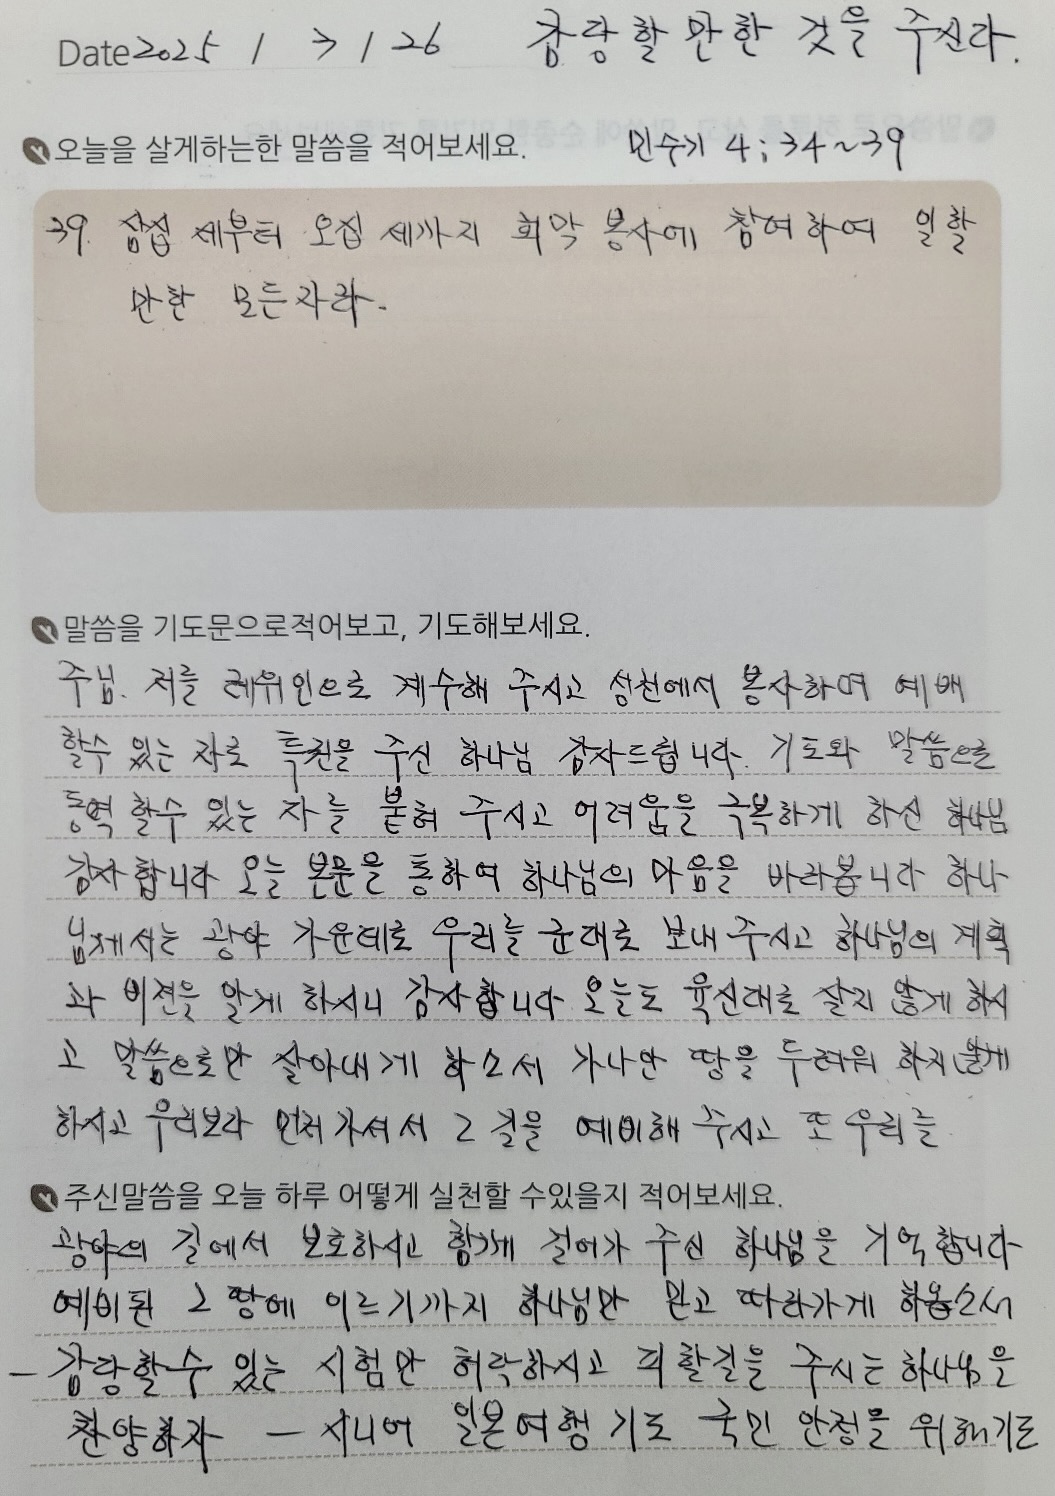 Date 2025 / 1 / 26 감당할 만한 것을 주신다.
오늘을 살게하는한 말씀을 적어보세요. 민수기 4:34~39
39. 삼십 세부터 오십 세까지 회막 봉사에 참여하여 일할
만한 모든자라.
말씀을 기도문으로적어보고, 기도해보세요.
주님. 저를 레위인으로 계수해 주시고 성전에서 봉사하며 예배
할수 있는 자로 특권을 주신 하나님 감사드립니다. 기도와 말씀으로
동역 할수 있는 자를 붙혀 주시고 어려움을 극복하게 하신 하나님
감사합니다 오늘 본문을 통하여 하나님의 마음을 바라봅니다 하나
님께서는 광야 가운데로 우리를 군대로 보내 주시고 하나님의 계획
과 비젼을 알게 하시니 감사합니다 오늘도 육신대로 살지 않게 하시
고 말씀으로만 살아내게 하소서 가나안 땅을 두려워 하지 않게
하시고 우리보다 먼저 가셔서 그 길을 예비해 주시고 또 우리를
주신말씀을 오늘 하루 어떻게 실천할 수있을지 적어보세요.
광야의 길에서 보호하시고 함께 걸어가 주신 하나님을 기억합니다
예비된 그 땅에 이르기까지 하나님만 믿고 따라가게 하옵소서
– 감당할수 있는 시험만 허락하시고 피할길을 주시는 하나님을
찬양하자 – 시니어 일본여행 기도 국민 안정을 위해기도